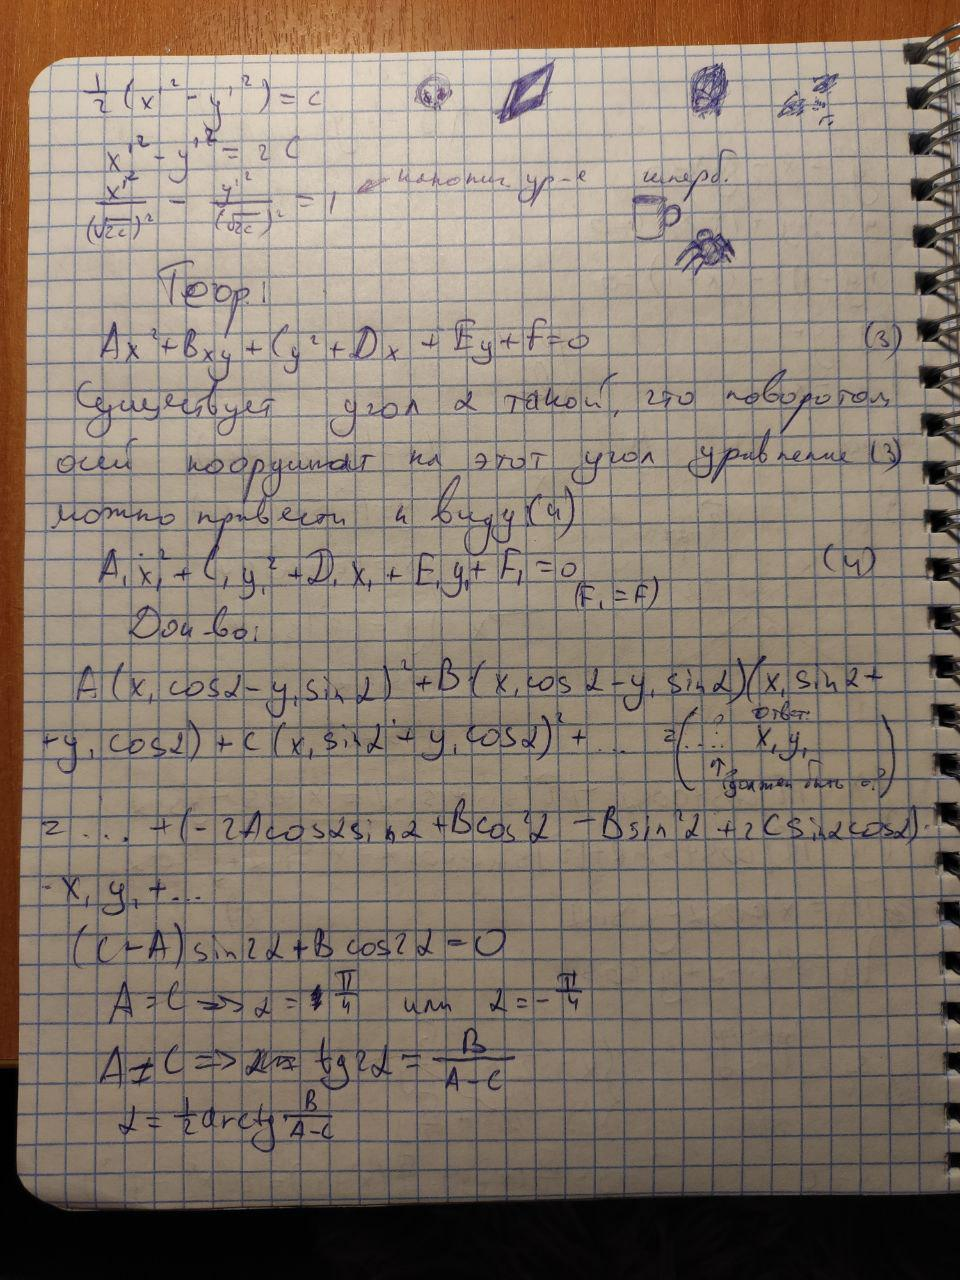 1/2 (x'² - y'²) = c
x'² - y'² = 2C
x'²/(√2c)² - y'²/(√2c)² = 1 ← канонич. ур-е гиперб.
Теор.:
Ax² + Bxy + Cy² + Dx + Ey + F = 0 (3)
Существует угол α такой, что поворотом
осей координат на этот угол уравнение (3)
можно привести к виду (4)
A₁x₁² + C₁y₁² + D₁x₁ + E₁y₁ + F₁ = 0 (4)
(F₁ = F)
Док-во:
A(x₁cosα - y₁sinα)² + B(x₁cosα - y₁sinα)(x₁sinα +
+ y₁cosα) + C(x₁sinα + y₁cosα)² + ... = (... x₁y₁)
↑ должен быть 0
= ... + (-2Acosαsinα + Bcos²α - Bsin²α + 2Csinαcosα)·
·x₁y₁ + ...
(C-A)sin2α + Bcos2α = 0
A = C => α = π/4 или α = -π/4
A ≠ C => tg2α = B/(A-C)
α = 1/2 arctg B/(A-C)